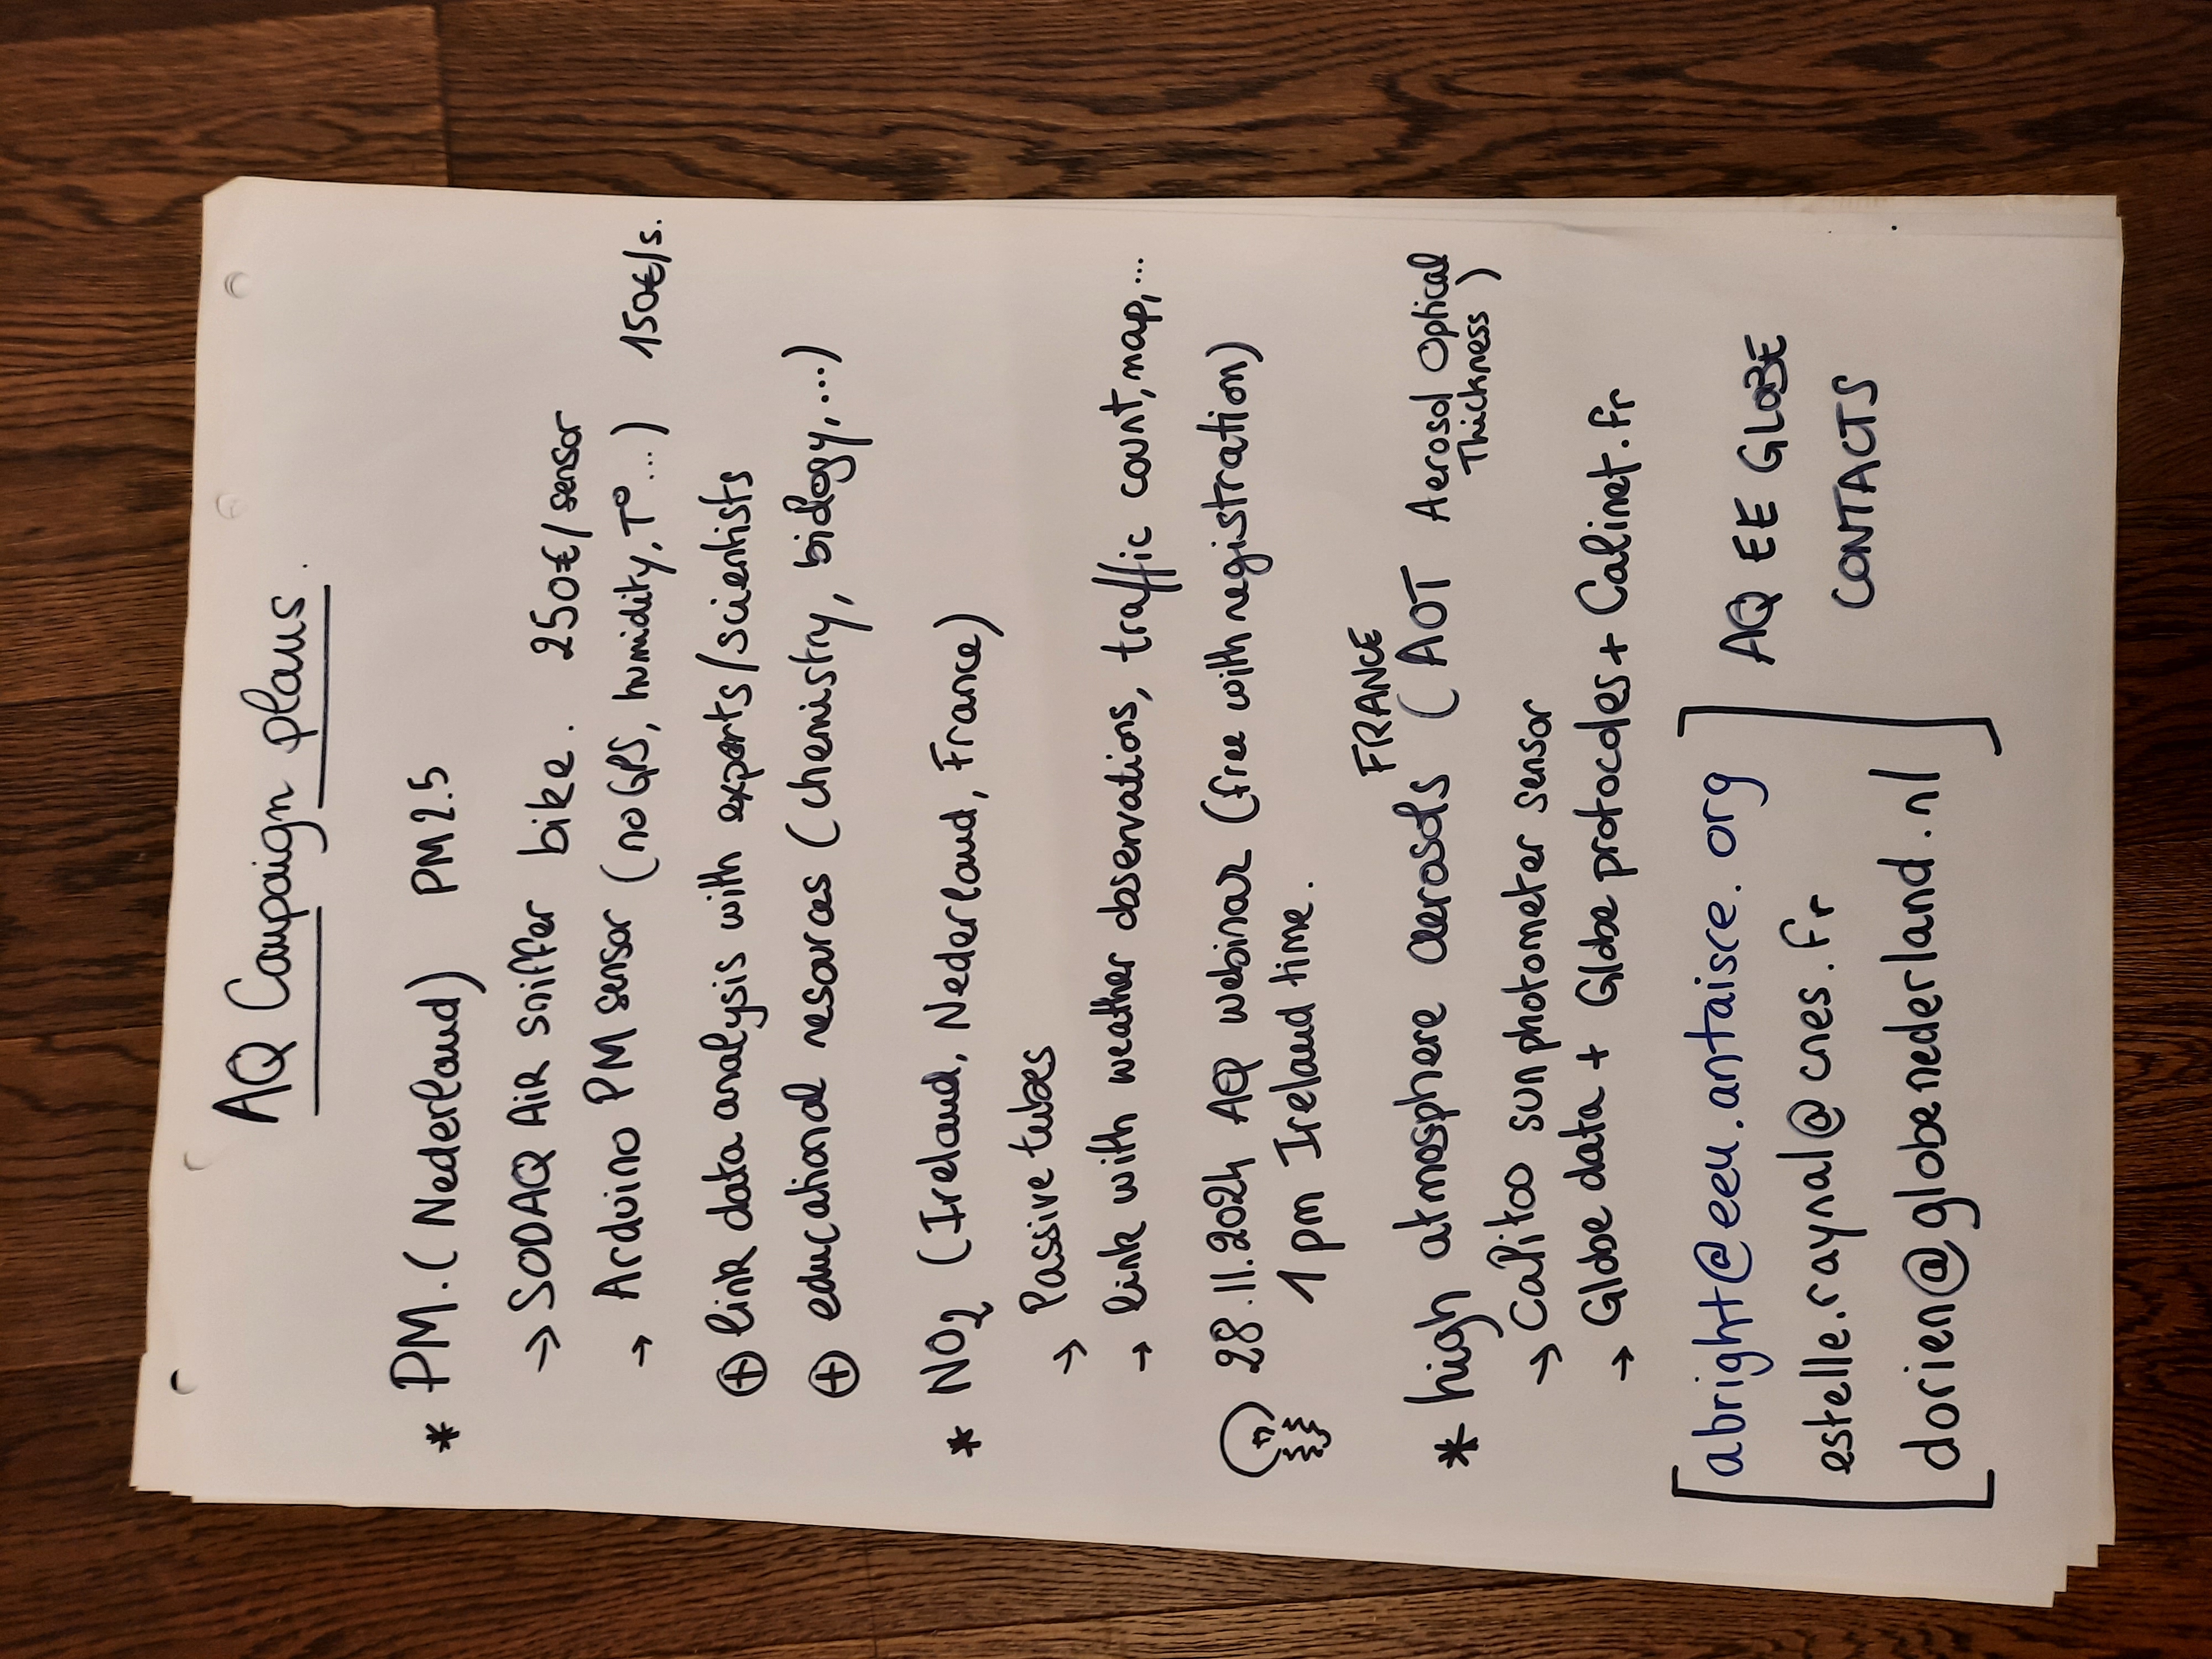 AQ Campaign plans.
* PM. (Nederland) PM 2.5
→ SODAQ AiR sniffer bike. 250€/sensor
→ Arduino PM sensor (no GPS, humidity, T°...) 150€/s.
⊕ link data analysis with experts/scientists
⊕ educational resources (chemistry, biology, ...)
* NO2 (Ireland, Nederland, France)
→ Passive tubes
→ link with weather observations, traffic count, map, ...
28.11.2024 AQ webinar (free with registration)
1 pm Ireland time.
FRANCE
* high atmosphere aerosols (AOT Aerosol Optical
Thickness)
→ Calitoo sun photometer sensor
→ Globe data + Globe protocoles + Calinet.fr
[abright@eeu.antaisce.org
estelle.raynal@cnes.fr
dorien@globenederland.nl]
AQ EE GLOBE
CONTACTS